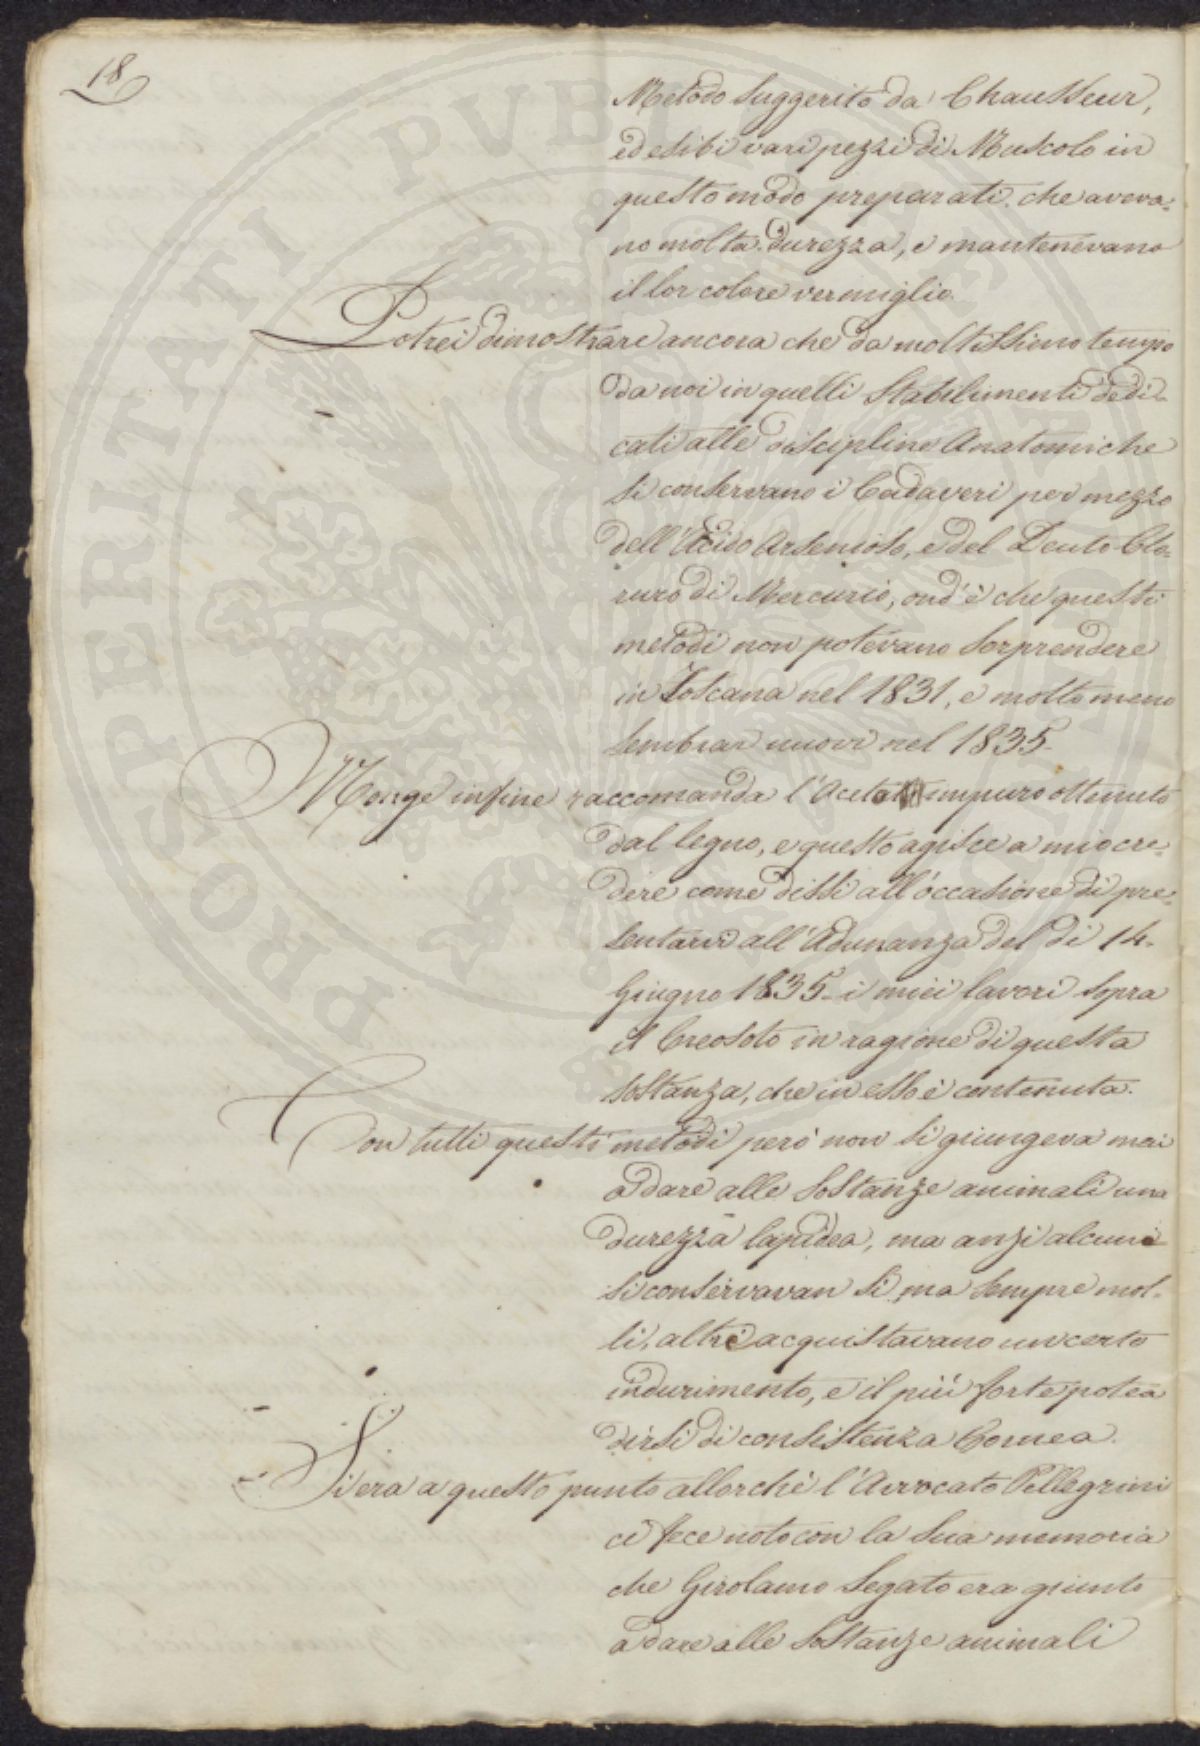 18
Metodo suggerito da Chausseur,
ed esibi vari pezzi di Muscolo in
questo modo preparati che aveva-
no molta durezza, e mantenevano
il lor colore vermiglio.
Potrei dimostrare ancora che da moltissimo tempo
da noi in quelli Stabilimenti dedi-
cati alle discipline Anatomiche
si conservano i Cadaveri per mezzo
dell'Acido Arsenioso, e del Deuto Clo-
ruro di Mercurio, ond'è che questi
metodi non potevano sorprendere
in Toscana nel 1831, e molto meno
sembrar nuovi nel 1835.
Monge infine raccomanda l'Aceto impuro ottenuto
dal legno, e questo agisce a mio cre-
dere come dissi all'occasione di pre-
sentarvi all'Adunanza del dì 14.
Giugno 1835. i miei lavori sopra
il Creosoto in ragione di questa
sostanza, che in esso è contenuta.
Con tutti questi metodi però non si giungeva mai
a dare alle sostanze animali una
durezza lapidea, ma anzi alcuni
si conservavan sì, ma sempre mol-
li, altri acquistavano un certo
indurimento, e il più forte potea
dirsi di consistenza Cornea.
Si era a questo punto allorchè l'Avvocato Pellegrini
ci fece noto con la sua memoria
che Girolamo Segato era giunto
a dare alle sostanze animali
PROSPERITATI PVBLICAE